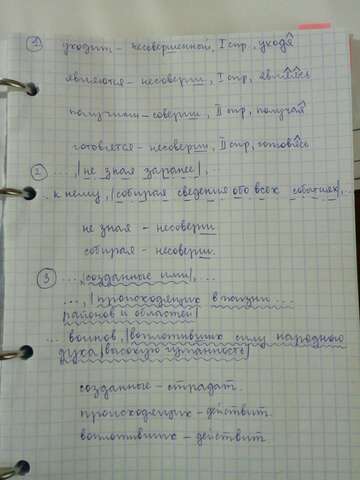 ① уходить - несовершенный, I спр, уходя
являются - несоверш, I спр, являясь
получили - соверш, II спр, получая
готовятся - несоверш, II спр, готовясь
② ..., |не зная заранее|,
.. к нему, |собирая сведения обо всех событиях|, ..
не зная - несоверш
собирая - несоверш.
③ ..., |созданные ими|, ...
..., |происходящих в жизни ...
районов и областей|
... воинов, |воплотивших силу народного
духа|высокую гуманность|
созданные - страдат.
происходящих - действит.
воплотивших - действит.